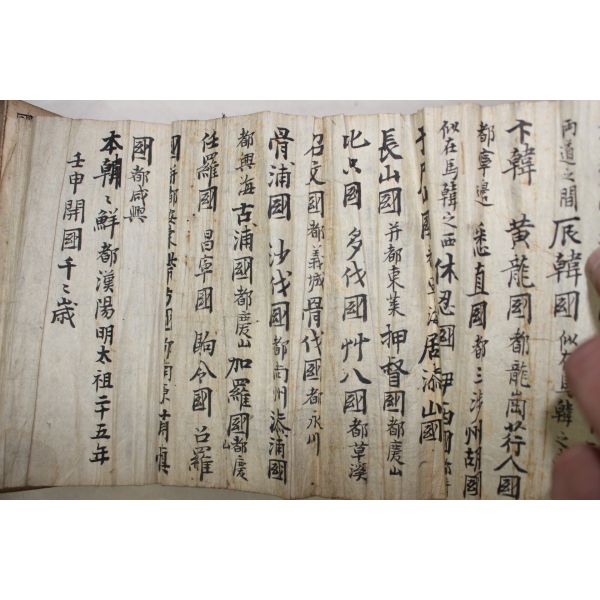 両道之間 辰韓國 似在馬韓之
卞韓 黄龍國都龍崗荇人國
都寧邊 悉直國都三涉州胡國
似在馬韓之西 休忍國 伊西國
居漆山國
長山國并都東萊 押督國都慶山
比只國 多伐國 艸八國都草溪
召文國都義城骨伐國都永川
骨浦國 沙伐國都尙州漆浦國
都興海 古浦國都慶山 加羅國都慶山
任羅國 昌寧國 駒令國 召羅
國
國都咸興
本朝〻鮮都漢陽明太祖二十五年
壬申開國千〻歲